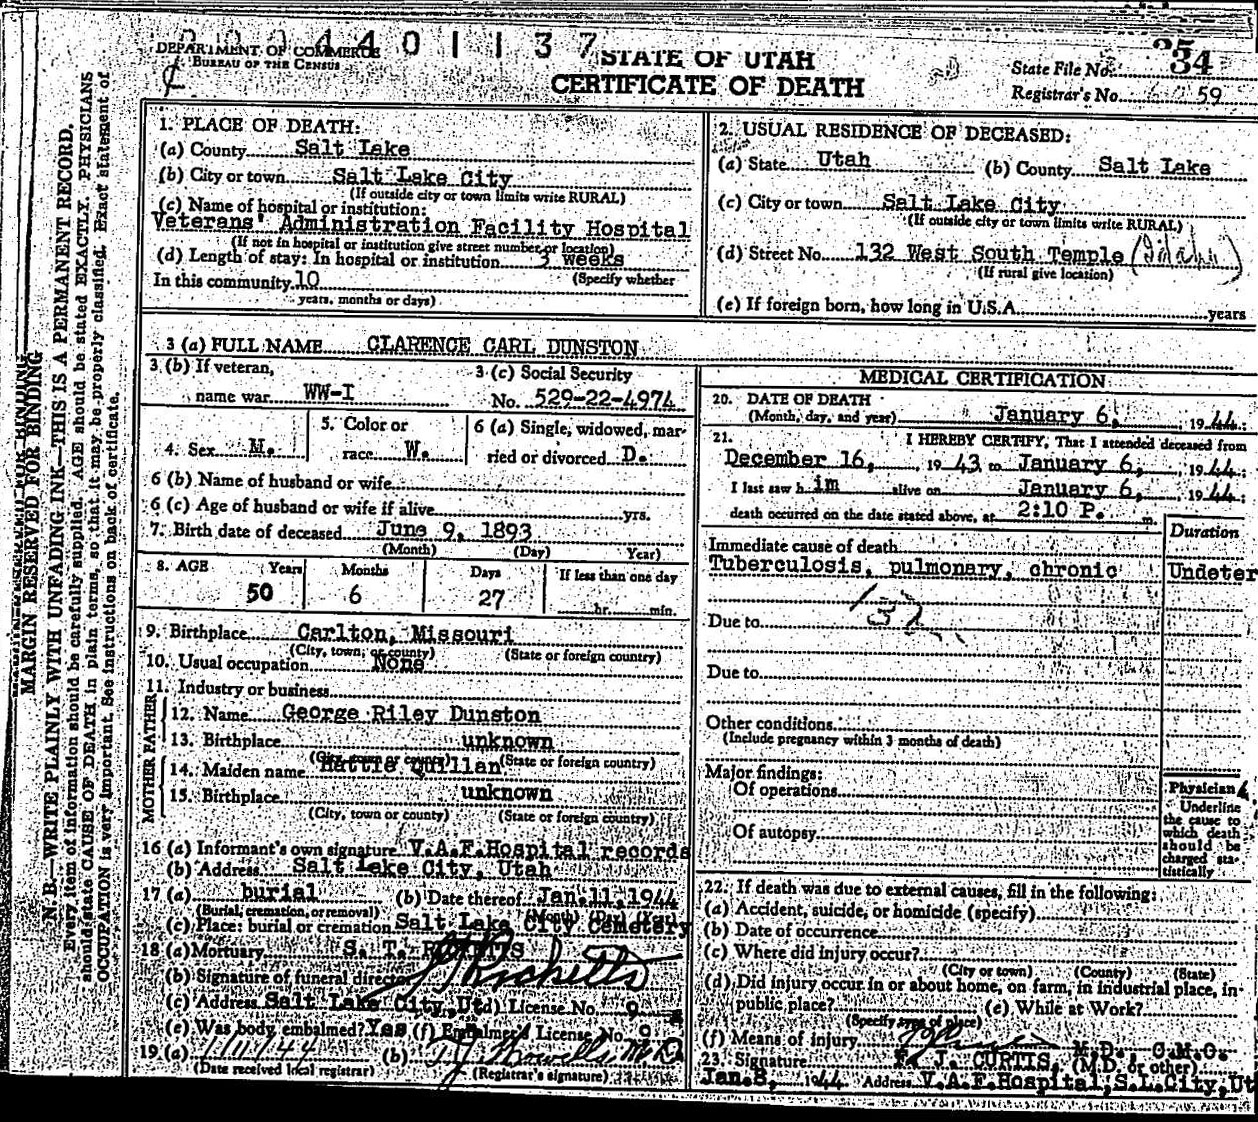 DEPARTMENT OF COMMERCE
BUREAU OF THE CENSUS
401137
STATE OF UTAH
CERTIFICATE OF DEATH
State File No. 34
Registrar's No. 59
MARGIN RESERVED FOR BINDING
N. B.—WRITE PLAINLY WITH UNFADING INK—THIS IS A PERMANENT RECORD.
Every item of information should be carefully supplied. AGE should be stated EXACTLY. PHYSICIANS
should state CAUSE OF DEATH in plain terms, so that it may be properly classified. Exact statement of
OCCUPATION is very important. See instructions on back of certificate.
1. PLACE OF DEATH:
(a) County Salt Lake
(b) City or town Salt Lake City
(If outside city or town limits write RURAL)
(c) Name of hospital or institution:
Veterans' Administration Facility Hospital
(If not in hospital or institution give street number or location)
(d) Length of stay: In hospital or institution 3 weeks
In this community 10 (Specify whether
years, months or days)
2. USUAL RESIDENCE OF DECEASED:
(a) State Utah (b) County Salt Lake
(c) City or town Salt Lake City
(If outside city or town limits write RURAL)
(d) Street No. 132 West South Temple
(If rural give location)
(e) If foreign born, how long in U.S.A. years
3 (a) FULL NAME CLARENCE CARL DUNSTON
3 (b) If veteran, name war WW-I
3 (c) Social Security No. 529-22-4974
4. Sex M.
5. Color or race W.
6 (a) Single, widowed, married or divorced D.
6 (b) Name of husband or wife
6 (c) Age of husband or wife if alive yrs.
7. Birth date of deceased June 9, 1893
(Month) (Day) Year)
8. AGE Years Months Days If less than one day
50 6 27 hr. min.
9. Birthplace Carlton, Missouri
(City, town, or county) (State or foreign country)
10. Usual occupation None
11. Industry or business
FATHER
12. Name George Riley Dunston
13. Birthplace unknown
(City, town or county) (State or foreign country)
MOTHER
14. Maiden name Hattie Quillan
15. Birthplace unknown
(City, town or county) (State or foreign country)
16 (a) Informant's own signature V.A.F.Hospital records
(b) Address Salt Lake City, Utah
17 (a) burial (b) Date thereof Jan. 11, 1944
(Burial, cremation, or removal) (Month) (Day) (Year)
(c) Place: burial or cremation Salt Lake City Cemetery
18 (a) Mortuary S. T.
(b) Signature of funeral director
(c) Address Salt Lake City, Ut d) License No. 9
(e) Was body embalmed? Yes (f) Embalmer's License No. 9
19 (a) 1/11/44 (b) M.D.
(Date received local registrar) (Registrar's signature)
MEDICAL CERTIFICATION
20. DATE OF DEATH
(Month, day, and year) January 6, 1944
21. I HEREBY CERTIFY, That I attended deceased from
December 16, 1943 to January 6, 1944
I last saw him alive on January 6, 1944
death occurred on the date stated above, at 2:10 P. m.
Duration
Immediate cause of death
Tuberculosis, pulmonary, chronic Undeter
Due to
Due to
Other conditions
(Include pregnancy within 3 months of death)
Major findings:
Of operations
Of autopsy
Physician
Underline
the cause to
which death
should be
charged sta-
tistically
22. If death was due to external causes, fill in the following:
(a) Accident, suicide, or homicide (specify)
(b) Date of occurrence
(c) Where did injury occur?
(City or town) (County) (State)
(d) Did injury occur in or about home, on farm, in industrial place, in
public place? (e) While at Work?
(Specify type of place)
(f) Means of injury
23. Signature F. J. CURTIS, M.D., C.M.O.
(M.D. or other)
Jan. 8, 1944 Address V.A.F.Hospital, S.L.City, Ut